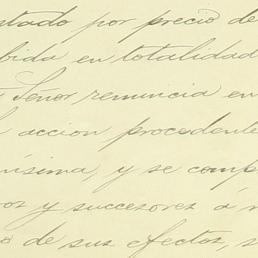 ntado por precio de
bida en totalidad
Señor renuncia en
accion procedente
nísima, y se comp
ros y successores á
o de sus efectos, s